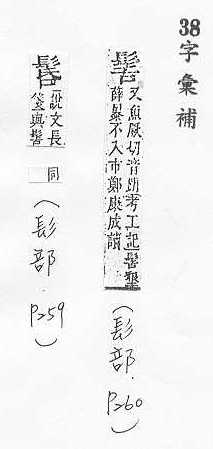 38字彙補
髺 又魚厥切音刖考工記髺墾
薛暴不入市鄭康成讀
(髟部.P260)
說文長
箋與髺
同
(髟部.P259)